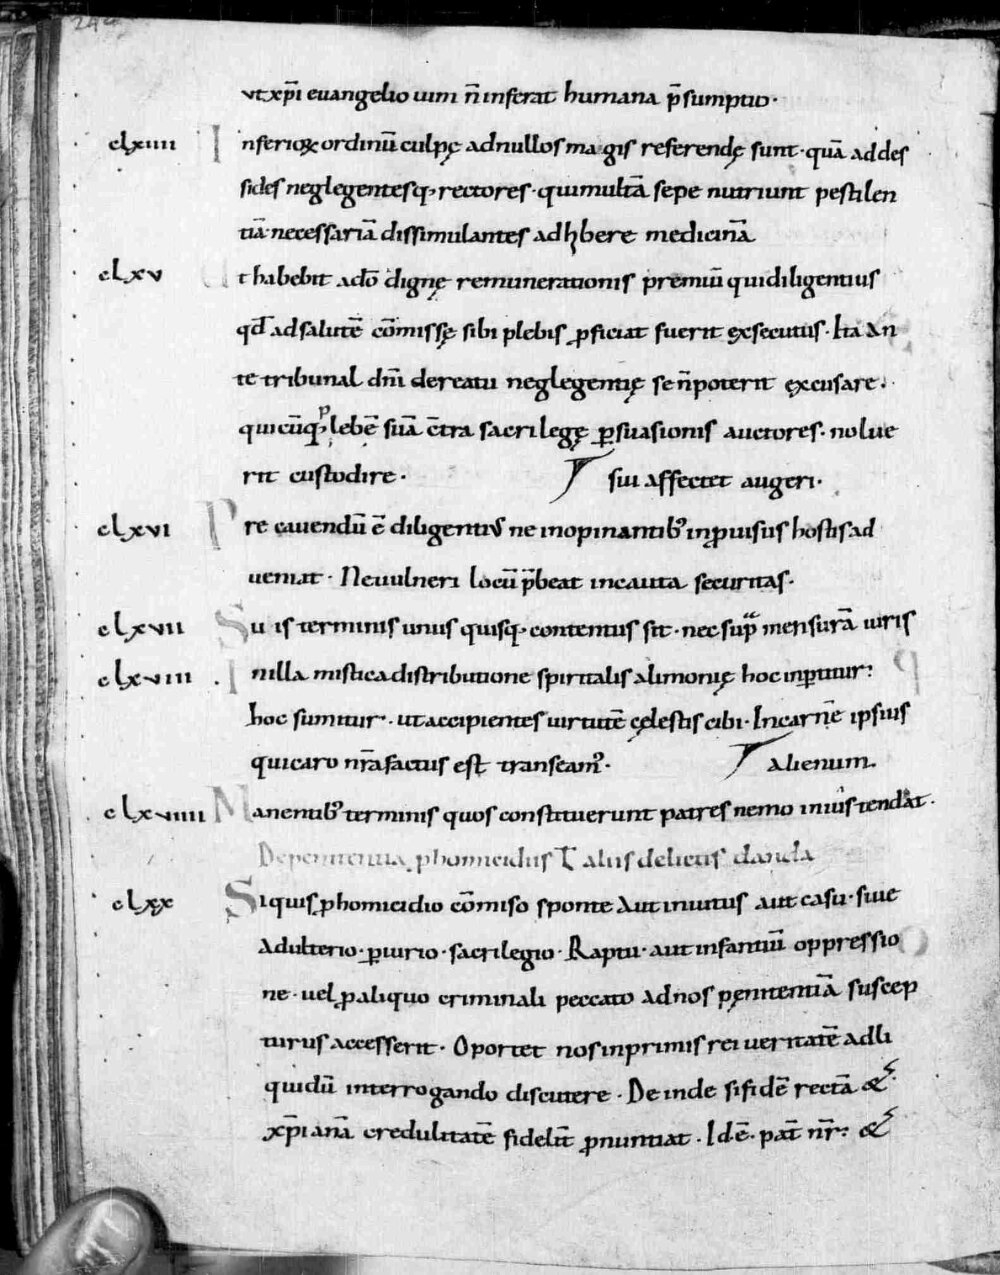 ut xp̄i euangelio uim n̄ inferat humana p̄sumptio·
clxiiii Inferioꝝ ordinū culpę ad nullos magis referendę sunt· quā ad des
sides neglegentesq; rectores· qui multā sepe nutriunt pestilen
tiā· necessariā dissimulantes adhibere medicinā
clxv Et habebit a dō dignę remunerationis premiū qui diligentius
qd̄ ad salutē cōmissę sibi plebis ꝓficiat fuerit exsecutus· Ita an
te tribunal dn̄i de reatu neglegentię se n̄ poterit excusare·
quicūq; plebē suā c̄tra sacrilegę ꝑsuasionis auctores· nolue
rit custodire· sui affectet augeri·
clxvi Precauendū ē diligentius ne inopinantib; inꝓuisus hostis ad
ueniat· Ne uulneri locū p̄beat incauta securitas·
clxvii Suis terminis unus quisq; contentus sit· nec sup̄ mensurā iuris
clxviii In illa mistica distributione spiritalis alimonię hoc inꝑtitur:
hoc sumitur· ut accipientes uirtutē cęlestis cibi· In carnē ipsius
qui caro nr̄a factus est transeam;· alienum·
clxviiii Manentib; terminis quos constituerunt patres nemo in ius tendat·
De penitentia ꝓ homicidiis ł aliis delictis danda
clxx Si quis ꝓ homicidio cōmisso sponte aut inuitus aut casu· siue
adulterio· ꝑiurio· sacrilegio· Raptu· aut infantiū oppressio
ne· uel ꝓ aliquo criminali peccato ad nos pęnitentiā suscep
turus accesserit· Oportet nos inprimis rei ueritatē ad li
quidū interrogando discutere· Deinde si fidē rectā &
xp̄ianā credulitatē fidelit̄ ꝓnuntiat· Id·ē· pat̄ nr̄: &